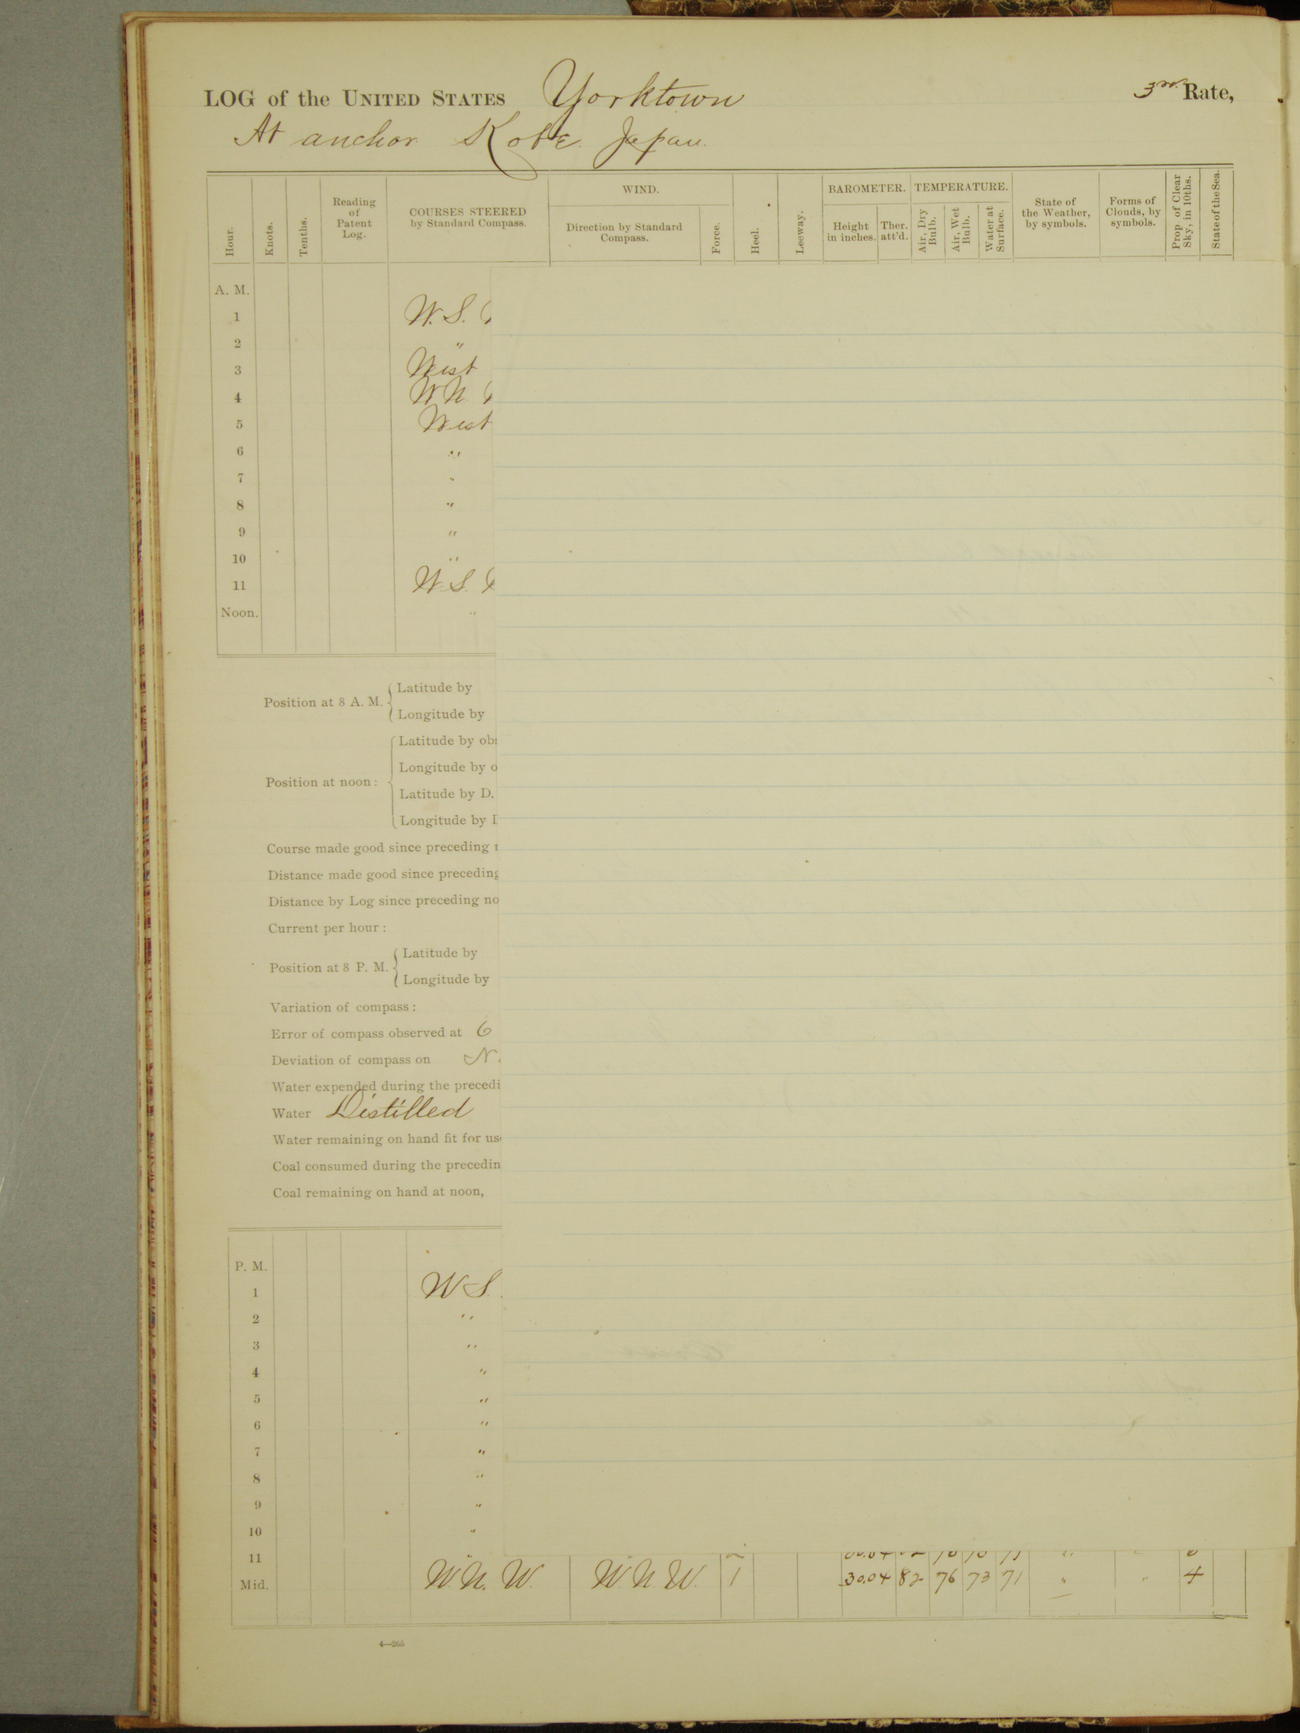 LOG of the UNITED STATES Yorktown 3rd Rate,
At anchor Kobe Japan.
Hour. Knots. Tenths. Reading of Patent Log. COURSES STEERED by Standard Compass. WIND. Direction by Standard Compass. Force. Heel. Leeway. BAROMETER. Height in inches. Ther. att'd. TEMPERATURE. Air, Dry Bulb. Air, Wet Bulb. Water at Surface. State of the Weather, by symbols. Forms of Clouds, by symbols. Prop. of Clear Sky, in 10ths. State of the Sea.
A. M.
1 W. S.
2 "
3 West
4 W N
5 West
6 "
7 "
8 "
9 "
10 "
11 W. S.
Noon. "
Position at 8 A. M. Latitude by
Longitude by
Latitude by obs
Longitude by o
Position at noon:
Latitude by D.
Longitude by
Course made good since preceding
Distance made good since preceding
Distance by Log since preceding no
Current per hour:
Latitude by
Position at 8 P. M.
Longitude by
Variation of compass:
Error of compass observed at 6
Deviation of compass on N.
Water expended during the precedi
Water Distilled
Water remaining on hand fit for us
Coal consumed during the precedin
Coal remaining on hand at noon,
P. M.
1 W S.
2 "
3 "
4 "
5 "
6 "
7 "
8 "
9 "
10 "
11
Mid. W. N. W. W N W. 1 30.04 82 76 73 71 " " 4
4—265